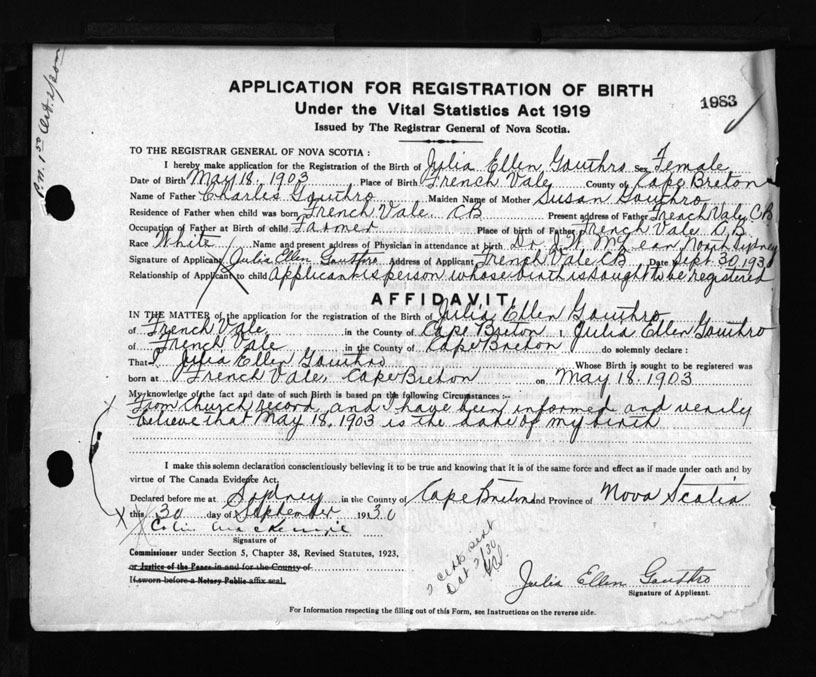 APPLICATION FOR REGISTRATION OF BIRTH
Under the Vital Statistics Act 1919
1983
Issued by The Registrar General of Nova Scotia.
TO THE REGISTRAR GENERAL OF NOVA SCOTIA :
I hereby make application for the Registration of the Birth of Julia Ellen Gouthro Sex Female
Date of Birth May 18. 1903 Place of Birth French Vale County of Cape Breton
Name of Father Charles Gouthro Maiden Name of Mother Susan Gouthro
Residence of Father when child was born French Vale CB Present address of Father French Vale, CB
Occupation of Father at Birth of child Farmer Place of birth of Father French Vale C.B.
Race White Name and present address of Physician in attendance at birth Dr J.W. McLean, North Sydney
Signature of Applicant Julia Ellen Gouthro Address of Applicant French Vale CB Date Sept 30, 193
Relationship of Applicant to child Applicant is person whose birth is sought to be registered
AFFIDAVIT
IN THE MATTER of the application for the registration of the Birth of Julia Ellen Gouthro
of French Vale in the County of Cape Breton I Julia Ellen Gouthro
of French Vale in the County of Cape Breton do solemnly declare :
That I Julia Ellen Gouthro Whose Birth is sought to be registered was
born at French Vale, Cape Breton on May 18. 1903
My knowledge of the fact and date of such Birth is based on the following Circumstances :-
From church record, and I have been informed and verily
believe that May 18, 1903 is the date of my birth
I make this solemn declaration conscientiously believing it to be true and knowing that it is of the same force and effect as if made under oath and by
virtue of The Canada Evidence Act.
Declared before me at Sydney in the County of Cape Breton and Province of Nova Scotia
this 30 day of September 1930
Colin MacKenzie
Signature of
Commissioner under Section 5, Chapter 38, Revised Statutes, 1923,
or Justice of the Peace in and for the County of
If sworn before a Notary Public affix seal.
sent
Oct 2/30
Julia Ellen Gouthro
Signature of Applicant.
For Information respecting the filling out of this Form, see Instructions on the reverse side.